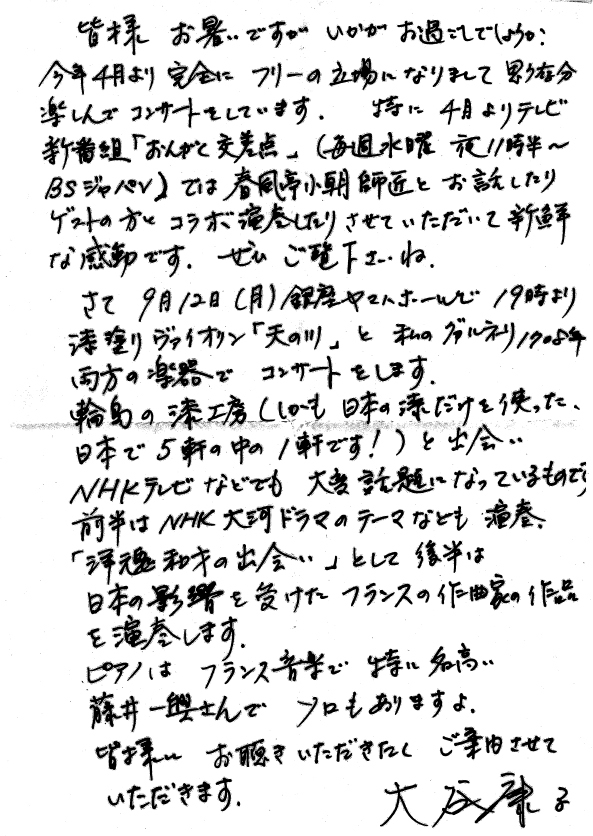 皆様 お暑いですが いかが お過ごしでしょうか?
今年4月より 完全に フリーの立場になりまして 思う存分
楽しんで コンサートをしています. 特に 4月よりテレビ
新番組「おんがく交差点」(毎週水曜 夜11時半〜
BSジャパン)では 春風亭小朝師匠と お話したり
ゲストの方と コラボ演奏したりさせていただいて 新鮮
な感動です. ぜひ ご覧下さいね.
さて 9月12日(月)銀座ヤマハホールで 19時より
漆塗りヴァイオリン「天の川」と 私のグァルネリ1708年
両方の楽器で コンサートをします.
輪島の漆工房(しかも 日本の漆だけを使った、
日本で 5軒の中の1軒です!)と出会い
NHKテレビなどでも 大変話題になっているものです
前半はNHK大河ドラマのテーマなども 演奏.
「洋魂和才の出会い」として 後半は
日本の影響を受けた フランスの作曲家の作品
を演奏します.
ピアノは フランス音楽で 特に名高い
藤井一興さんで ソロもありますよ.
皆様に お聴きいただきたく ご案内させて
いただきます.
大谷康子